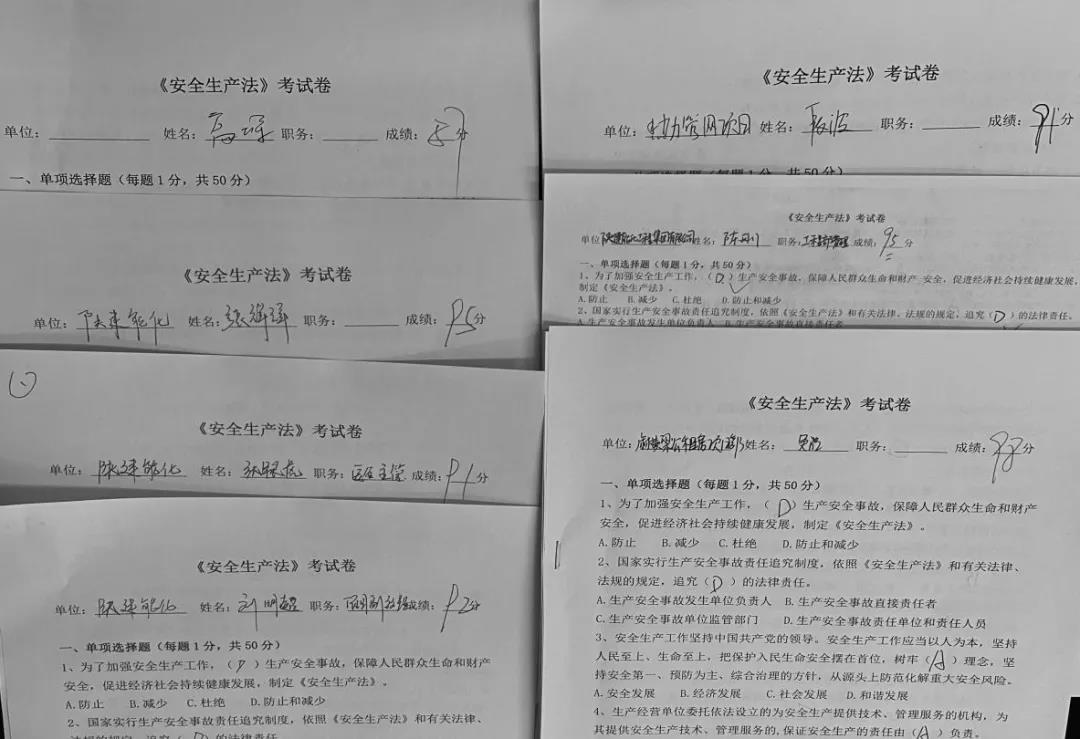 《安全生产法》考试卷
单位： 姓名： 职务： 成绩： 分
一、单项选择题（每题1分，共50分）
《安全生产法》考试卷
单位：陕建能化 姓名： 职务： 成绩：95分
《安全生产法》考试卷
单位：陕建能化 姓名： 职务： 成绩：91分
《安全生产法》考试卷
单位：陕建能化 姓名：刘明超 职务： 成绩：92分
一、单项选择题（每题1分，共50分）
1、为了加强安全生产工作，（D）生产安全事故，保障人民群众生命和财产
安全，促进经济社会持续健康发展，制定《安全生产法》。
A.防止 B.减少 C.杜绝 D.防止和减少
2、国家实行生产安全事故责任追究制度，依照《安全生产法》和有关法律、
法规的规定，追究（D）的法律责任
《安全生产法》考试卷
单位：热力管网项目 姓名： 职务： 成绩：91分
《安全生产法》考试卷
单位 姓名：陈刚 职务： 成绩：95分
一、单项选择题（每题1分，共50分）
1、为了加强安全生产工作，（D）生产安全事故，保障人民群众生命和财产 安全，促进经济社会持续健康发展，
制定《安全生产法》。
A.防止 B.减少 C.杜绝 D.防止和减少
2、国家实行生产安全事故责任追究制度，依照《安全生产法》和有关法律、法规的规定，追究（D）的法律责任。
A.生产安全事故发生单位负责人 B.生产安全事故直接责任者
《安全生产法》考试卷
单位： 姓名： 职务： 成绩： 分
一、单项选择题（每题1分，共50分）
1、为了加强安全生产工作，（D）生产安全事故，保障人民群众生命和财产
安全，促进经济社会持续健康发展，制定《安全生产法》。
A.防止 B.减少 C.杜绝 D.防止和减少
2、国家实行生产安全事故责任追究制度，依照《安全生产法》和有关法律、
法规的规定，追究（D）的法律责任。
A.生产安全事故发生单位负责人 B.生产安全事故直接责任者
C.生产安全事故单位监管部门 D.生产安全事故责任单位和责任人员
3、安全生产工作坚持中国共产党的领导。安全生产工作应当以人为本，坚持
人民至上、生命至上，把保护人民生命安全摆在首位，树牢（A）理念，坚
持安全第一、预防为主、综合治理的方针，从源头上防范化解重大安全风险。
A.安全发展 B.经济发展 C.社会发展 D.和谐发展
4、生产经营单位委托依法设立的为安全生产提供技术、管理服务的机构，为
其提供安全生产技术、管理服务的,保证安全生产的责任由（A）负责。